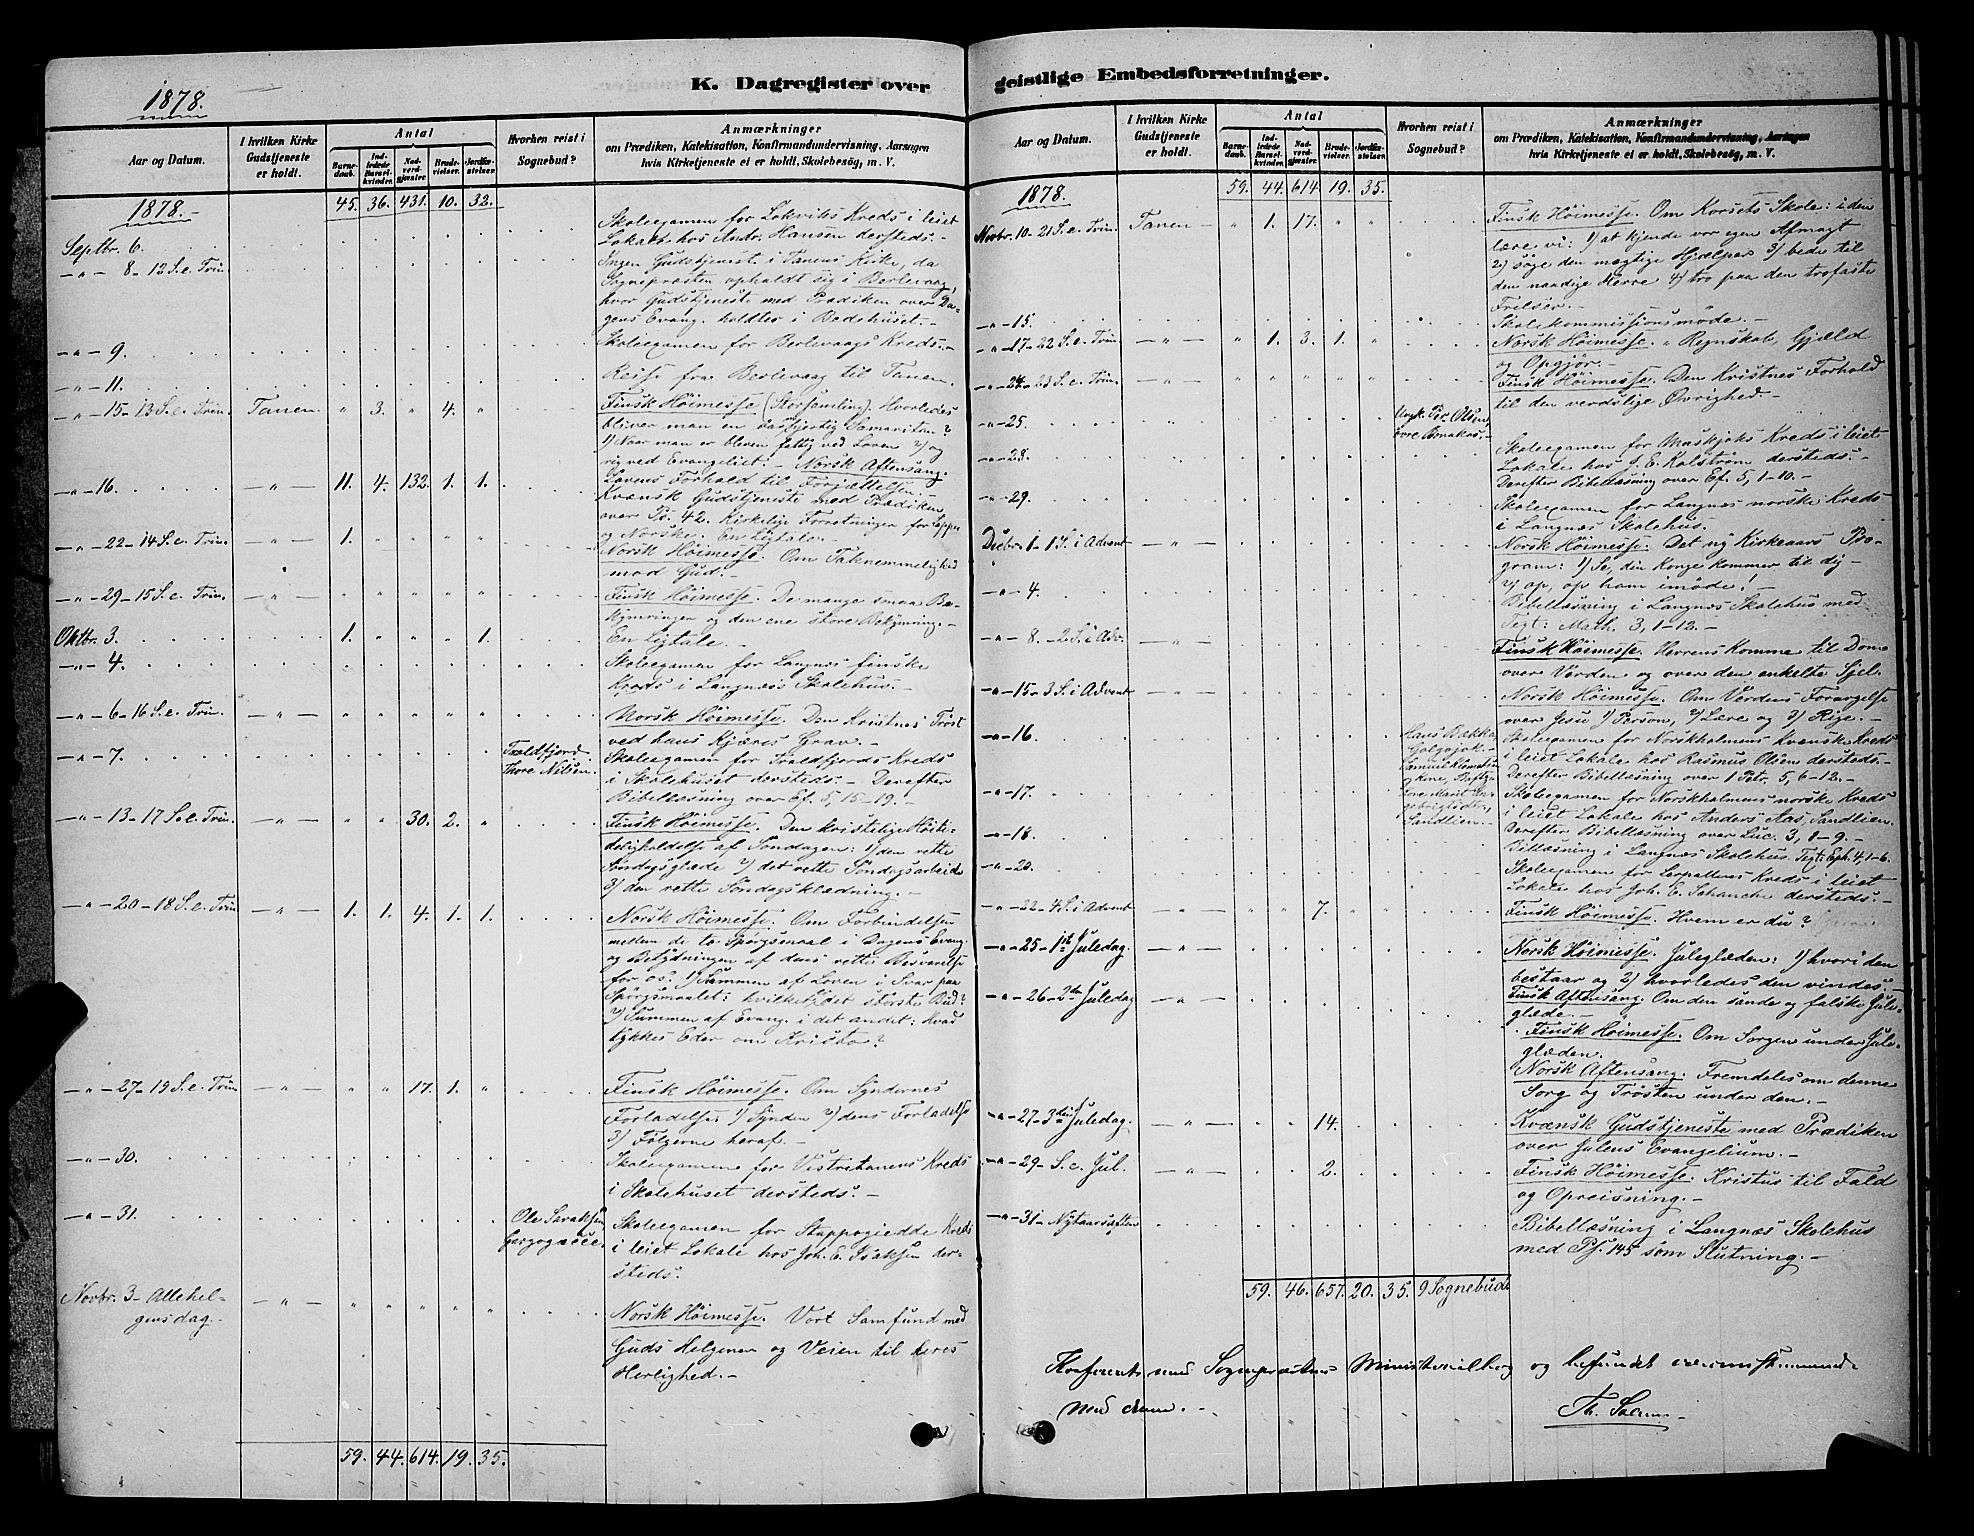 K. Dagregister over
1878.
Aar og Datum.
I hvilken Kirke Gudstjeneste er holdt.
Antal
Barnedaab.
Indledede Barselkvinder.
Nadverdgjæster.
Brudevielser.
Jordfæstelser.
Hvorhen reist i Sognebud?
Anmærkninger
om Prædiken, Katekisation, Konfirmandundervisning, Aarsagen
hvis Kirketjeneste ei er holdt, Skolebesög, m. V.
1878.- 45. 36. 431. 10. 32.
Septbr. 6. Skoleexamen for Lokviks Kreds i leiet
Lokale hos Andr. Hansen dersteds.-
-"- 8- 12 S. e. Trin. Ingen Gudstjeneste i Tanens Kirke, da
Sognepræsten opholdt sig i Berlevaag,
hvor Gudstjeneste med Prædiken over Da-
gens Evang. holdtes i Bedehuset.-
-"- 9. Skoleexamen for Berlevaags Kreds.-
-"- 11. Reise fra Berlevaag til Tanen.
-"- 15- 13 S. e. Trin. Tanen " 3. " 4. " Finsk Höimesse (Storsamling). Hvorledes
bliver man en barmhjertig Samaritan?
1) Naar man er bleven fattig ved Loven 2) og
rig ved Evangeliet.- Norsk Aftensang.
Lovens Forhold til Forjættelsen.-
-"- 16. -"- 11. 4. 132. 1. 1. Kvænsk Gudstjeneste med Prædiken
over Ps. 42. Kirkelige Forretninger for Lapper
og Norske. En Ligtale.-
-"- 22- 14 S. e. Trin. -"- 1. " " " " Norsk Höimesse. Om Taknemmelighed
mod Gud.-
-"- 29- 15 S. e. Trin. -"- " " " " " Finsk Höimesse. De mange smaa Be-
kymringer og den ene store Bekymring.-
Oktbr. 3. 1. " " " 1. En Ligtale.-
-"- 4. Skoleexamen for Langnæs finske
Kreds i Langnæs Skolehus.-
-"- 6- 16 S. e. Trin. -"- " " " " " Norsk Höimesse. Den Kristnes Tröst
ved hans Kjæres Grav.-
-"- 7. Traldfjord. Thore Nilsen. Skoleexamen for Traldfjords Kreds
i Skolehuset dersteds.- Derefter
Bibellæsning over Ef. 5, 15-19.-
-"- 13- 17 S. e. Trin. -"- " " 30. 2. " Finsk Höimesse. Den kristelige Höiti-
deligholdelse af Söndagen: 1) den rette
Söndagsglæde 2) det rette Söndagsarbeide
3) den rette Söndagsklædning.-
-"- 20- 18 S. e. Trin -"- 1. 1. 4. 1. 1. Norsk Höimesse. Om Forbindelsen
mellem de to Spörgsmaal i Dagens Evang.
og Betydningen af dens rette Besvarelse
for os: 1) Summen af Loven i Svar paa
Spörgsmaalet: hvilket er det störste Bud?
2) Summen af Evang. i det andet: Hvad
tykkes Eder om Kristo?
-"- 27- 19 S. e. Trin -"- " " 17. 1. " Finsk Höimesse. Om Syndernes
Forladelse: 1) Synden 2) dens Forladelse
3) Fölgerne heraf.-
-"- 30. Skoleexamen for Vestretanens Kreds
i Skolehuset dersteds.-
-"- 31. Ole Saraksen Skoleexamen for Stappogiedde Kreds
i leiet Lokale hos Joh. E. Isaksen der-
steds.
Novbr. 3- Allehel-
gensdag.- -"- " " " " " Norsk Höimesse. Vort Samfund med
Guds Helgener og Veien til deres
Herlighed.-
59. 44. 614. 19. 35.
geistlige Embedsforretninger.
Aar og Datum.
I hvilken Kirke Gudstjeneste er holdt.
Antal
Barnedaab.
Indledede Barselkvinder.
Nadverdgjæster.
Brudevielser.
Jordfæstelser.
Hvorhen reist i Sognebud?
Anmærkninger
om Prædiken, Katekisation, Konfirmandundervisning, Aarsagen
hvis Kirketjeneste ei er holdt, Skolebesög, m. V.
1878. 59. 44. 614. 19. 35.
Novbr. 10- 21 S. e. Trin. Tanen- " 1. 17. " " Finsk Höimesse. Om Korsets Skole: i den
lære vi: 1) at kjende vor egen Afmagt
2) söge den mægtige Hjælper 3) bede til
den naadige Herre 4) tro paa den trofaste
Frelser.-
-"- 15. Skolekommissionsmöde.-
-"- 17- 22 S. e. Trin -"- " 1. 3. 1. " Norsk Höimesse. Regnskab, Gjæld
og Opgjör.-
-"- 24- 23 S. e. Trin. -"- " " " " " Finsk Höimesse. Den Kristnes Forhold
til den verdslige Övrighed.-
-"- 25. Ungk. Per Olsen, övre Bonakas.-
-"- 28. Skoleexamen for Maskjoks Kreds i leiet
Lokale hos J. E. Kolström dersteds.-
Derefter Bibellæsning over Ef. 5, 1-10.-
-"- 29. Skoleexamen for Langnæs norske Kreds
i Langnæs Skolehus.
Decbr. 1- 1 S. i Advent -"- Norsk Höimesse. Det ny Kirkeaars Pro-
gram: 1) Se, din Konge kommer til dig-
2) op, op ham imöde!-
-"- 4. Bibellæsning i Langnæs Skolehus med
Text: Math. 3, 1-12.-
-"- 8.- 2 S. i Adv. -"- Finsk Höimesse. Herrens Komme til Dom
over Verden og over den enkelte Sjel.-
-"- 15- 3 S. i Advent -"- Norsk Höimesse. Om Verdens Forargelse
over Jesu 1) Person, 2) Lære og 3) Rige.-
-"- 16. Hans Bækka, Skoleexamen for Norskholmens Kvænske Kreds
i leiet Lokale hos Rasmus Olsen dersteds.-
Derefter Bibellæsning over 1 Petr. 5, 6-12.-
-"- 17. Skoleexamen for Norskholmens norske Kreds
i leiet Lokale hos Anders Aas, Sandlien.
Derefter Bibellæsning over Luc. 3, 1-9.-
Sandlien.-
-"- 18. Billæsning i Langnæs Skolehus. Text: Eph. 4, 1-6.
-"- 20. Skoleexamen for Leopollens Kreds i leiet
Lokale hos Joh. E. Schanche dersteds.-
-"- 22- 4 S. i Advent -"- 7. Finsk Höimesse. Hvem er du?
-"- 25- 1ste Juledag. -"- Norsk Höimesse. Juleglæden: 1) hvori den
bestaar og 2) hvorledes den vindes.
Finsk Aftensang. Om den sande og falske Jule-
glæde.-
-"- 26- 2den Juledag -"- Finsk Höimesse. Om Sorgen under Jule-
glæden.
Norsk Aftensang. Fremdeles om denne
Sorg og Trösten under den.-
-"- 27- 3die Juledag. -"- 14. Kvænsk Gudstjeneste med Prædiken
over Julens Evangelium.-
-"- 29- S. e. Jul. -"- 2. Finsk Höimesse: Kristus til Fald
og Opreisning.-
-"- 31- Nytaarsaften Bibellæsning i Langnæs Skolehus
med Ps. 145 som Slutning.-
59. 46. 657. 20. 35. 9 Sognebude
Konfereret med Sognepræstens Ministerialbog og befundet overensstemmende
med denne.-
Th.